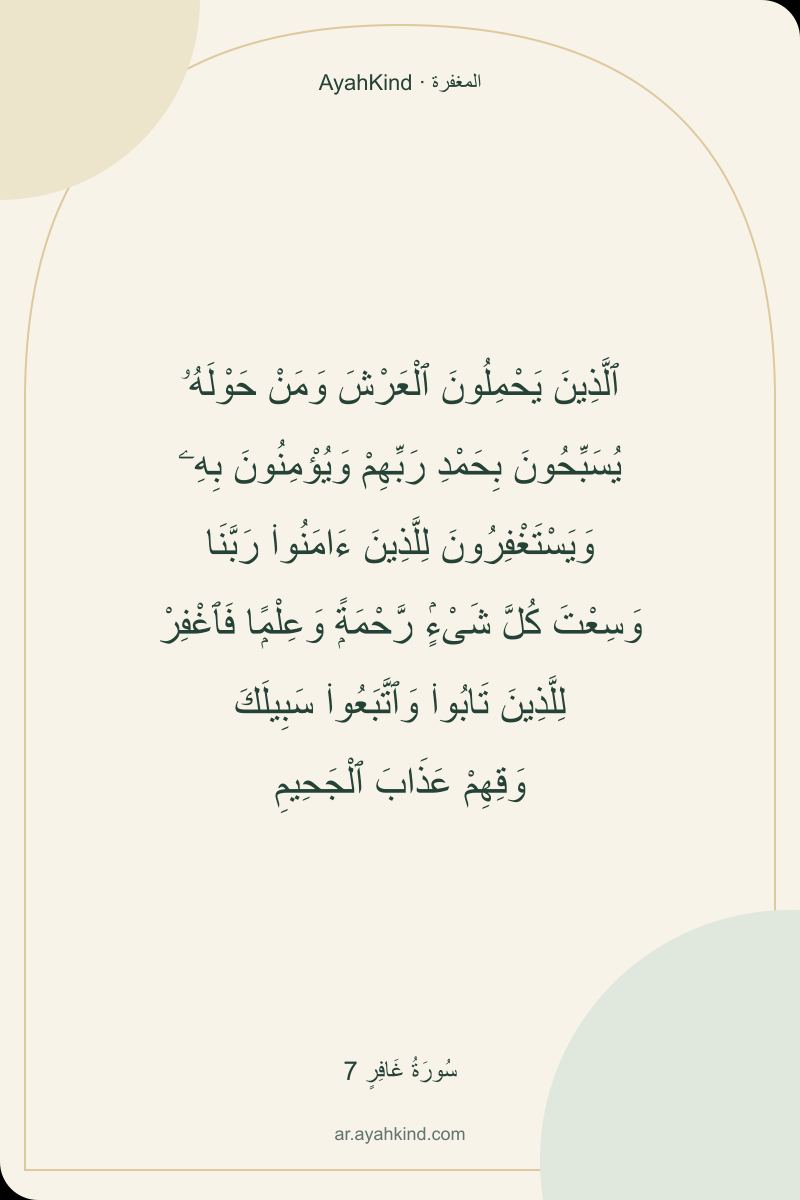 AyahKind · المغفرة
ٱلَّذِينَ يَحْمِلُونَ ٱلْعَرْشَ وَمَنْ حَوْلَهُۥ
يُسَبِّحُونَ بِحَمْدِ رَبِّهِمْ وَيُؤْمِنُونَ بِهِۦ
وَيَسْتَغْفِرُونَ لِلَّذِينَ ءَامَنُوا۟ رَبَّنَا
وَسِعْتَ كُلَّ شَىْءٍۢ رَّحْمَةًۭ وَعِلْمًۭا فَٱغْفِرْ
لِلَّذِينَ تَابُوا۟ وَٱتَّبَعُوا۟ سَبِيلَكَ
وَقِهِمْ عَذَابَ ٱلْجَحِيمِ
سُورَةُ غَافِرٍ 7
ar.ayahkind.com